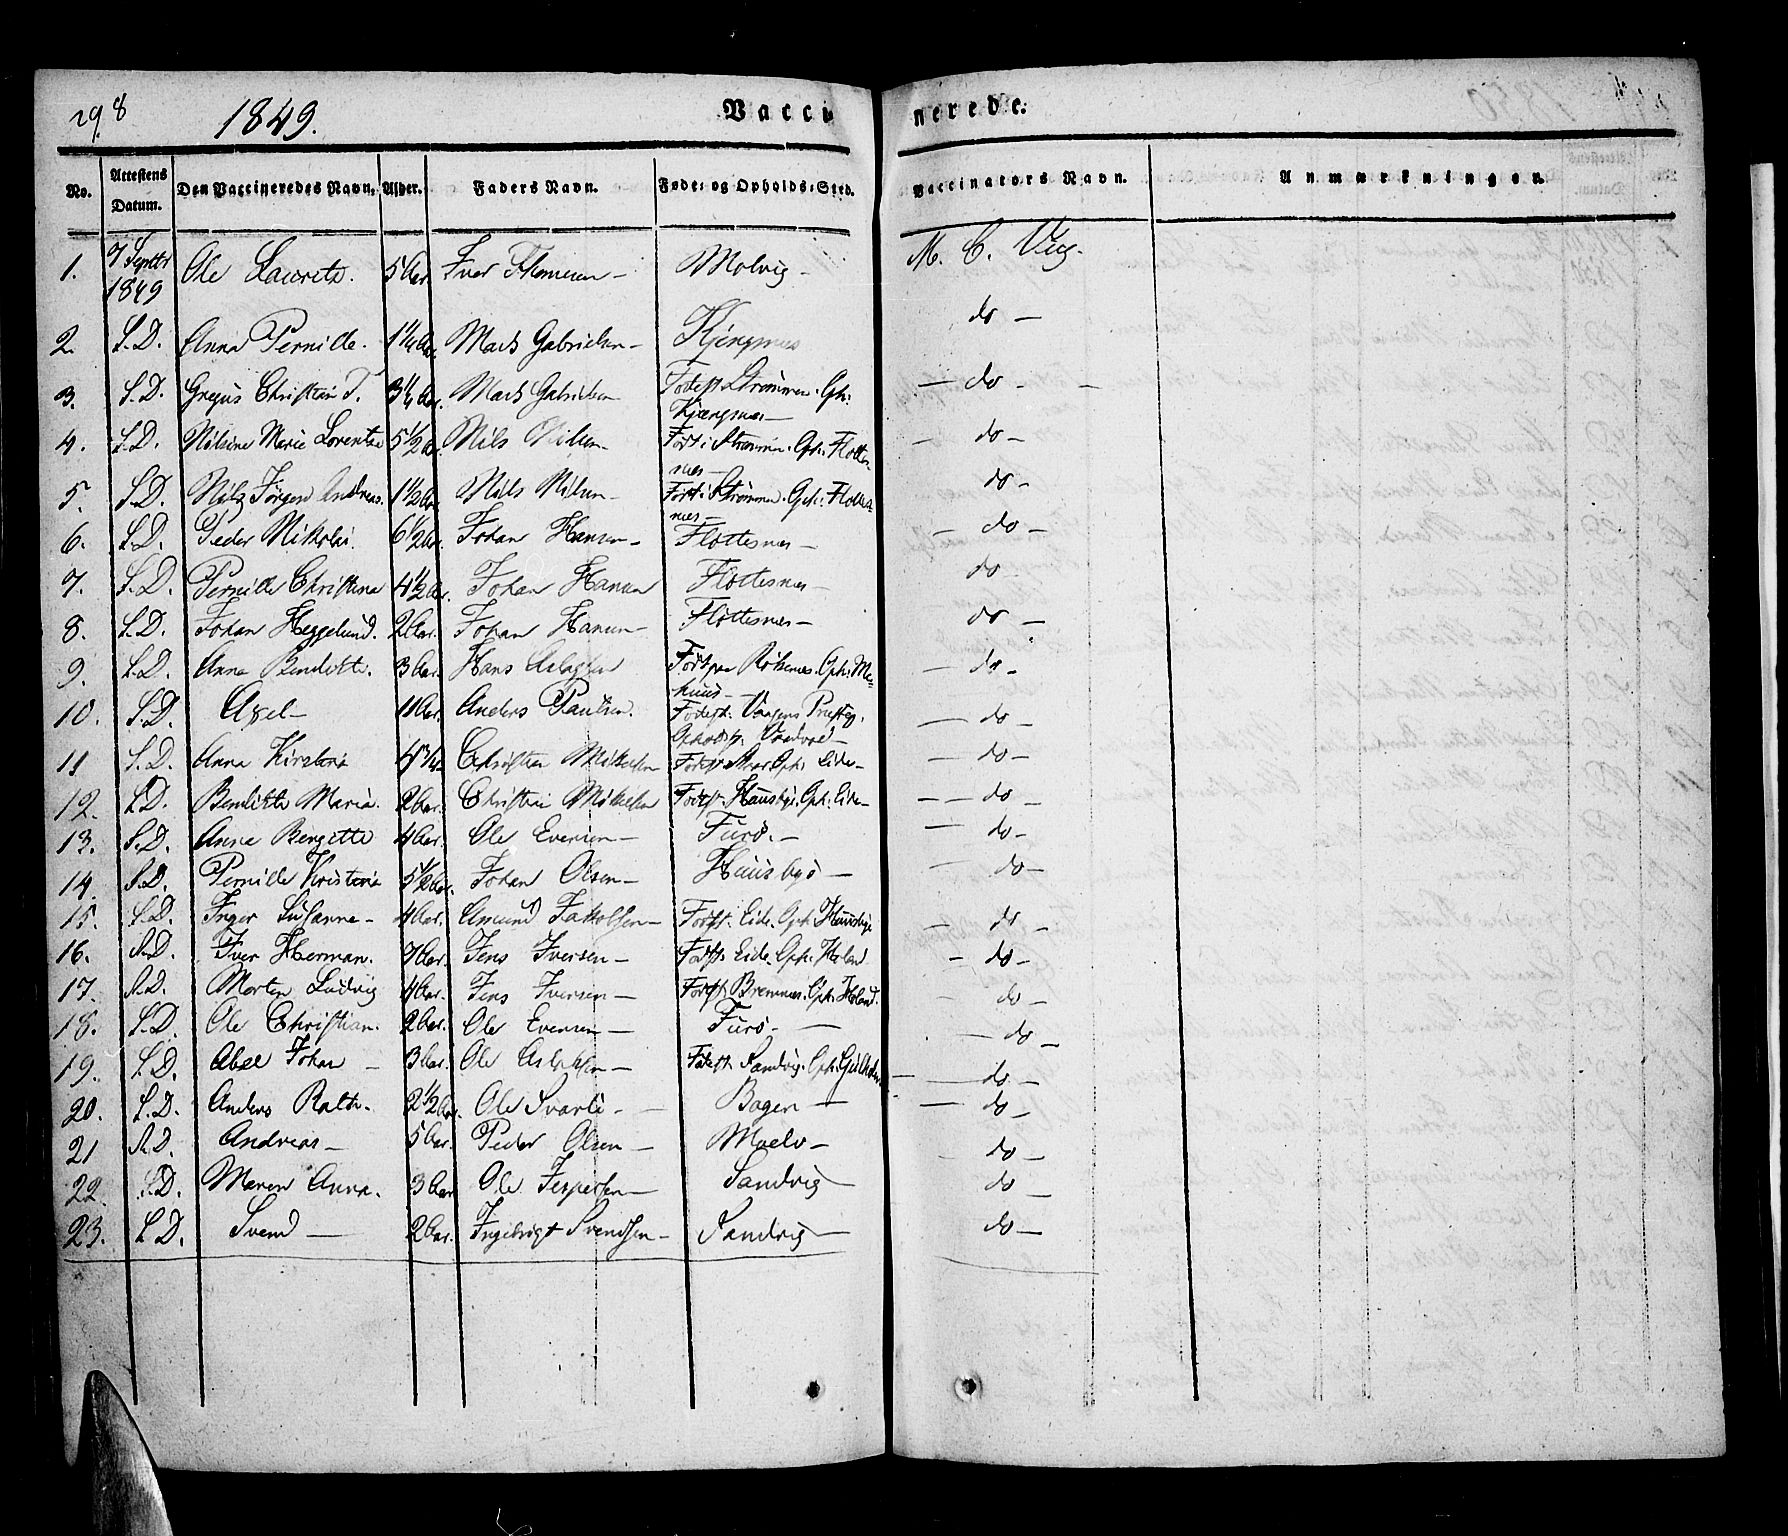 298 1849. Vacci nerede.
No. Attestens Datum. Den Vaccineredes Navn. Alder. Faders Navn. Føde- og Opholds-Sted. Vaccinators Navn. Anmærkninger.
1. 7 Septbr 1849 Ole Lauritz. 5 Aar Iver Thomesen — Molvig — M. C. Vug.
2. S. D. Anna Pernille. 1¼ Aar. Mads Gabrielsen — Kjengsnæs do —
3. S. D. Gregus Christian T. 3¼ Aar. Mads Gabrielsen Fødest. Strømmen. Oph: — do —
Kjengsnæs —
4. S. D. Nilsine Marie Lorentze 5½ Aar. Nils Nilsen — Født i Strømmen. Oph: Flottes- — do —
næs —
5. S. D. Nilz Jørgen Andreas. 1½ Aar Nils Nilsen — Født i Strømmen. Oph: Flottes- do —
næs —
6. S. D. Peder Nikolai. 6½ Aar. Johan Hansen — Flottesnæs — — do —
7. S. D. Pernille Christina 4½ Aar. Johan Hansen Flottesnæs — do
8. S. D. Johan Heggelund. 2 Aar. Johan Hansen — Flottesnæs — do —
9. S. D. Anna Bendikte. 3 Aar. Hans Aslagsen Født paa Rødsnæs. Oph: Me- — do —
huus —
10. S. D. Axel — 11 Aar. Anders Paulsen. Fødest: Vaagens Præsteg. — do —
11 S. D. Anna Kirstina 4¾ Christen Mikelsen Oph: Eide — — do —
12. S. D. Bendikte Maria. 2 Aar. Christen Mikelsen Fødest. Huusbye. Oph: Eide — — — do —
13. S. D. Anna Bergitte 4 Aar. Ole Evensen — Furø. — — do —
14. S. D. Pernille Kristina 5½ Aar. Johan Olsen — Huusbye — — do
15. S. D. Inger Susanne — 4 Aar. Amund Jakobsen — Fødest. Eide. Oph: Huusbye — do —
16. S. D. Iver Herman. 7 Aar. Jens Iversen — Fødest. Eide. Oph: Holand — do —
17. S. D. Morten Ludvig 4 Aar. Jens Iversen — Fødest. Bremnæs. Oph: Holand. — do —
18. S. D. Ole Christian. 2 Aar. Ole Evensen — Furø. — — do —
19. S. D. Abel Johan — 3 Aar. Ole Aslaksen — Fødest. Sandvig. Oph: — do —
20. S. D. Anders Rath. 2½ Aar. Ole Svarte — Bogen — — do —
21 S. D. Andreas — 5 Aar. Peder Olsen — Moelv — do —
22. S. D. Maren Anna. 3 Aar Ole Jespersen — Sandvig — do —
23. S. D. Svend — 2 Aar. Ingebrigt Svendsen — Sandvig — do —